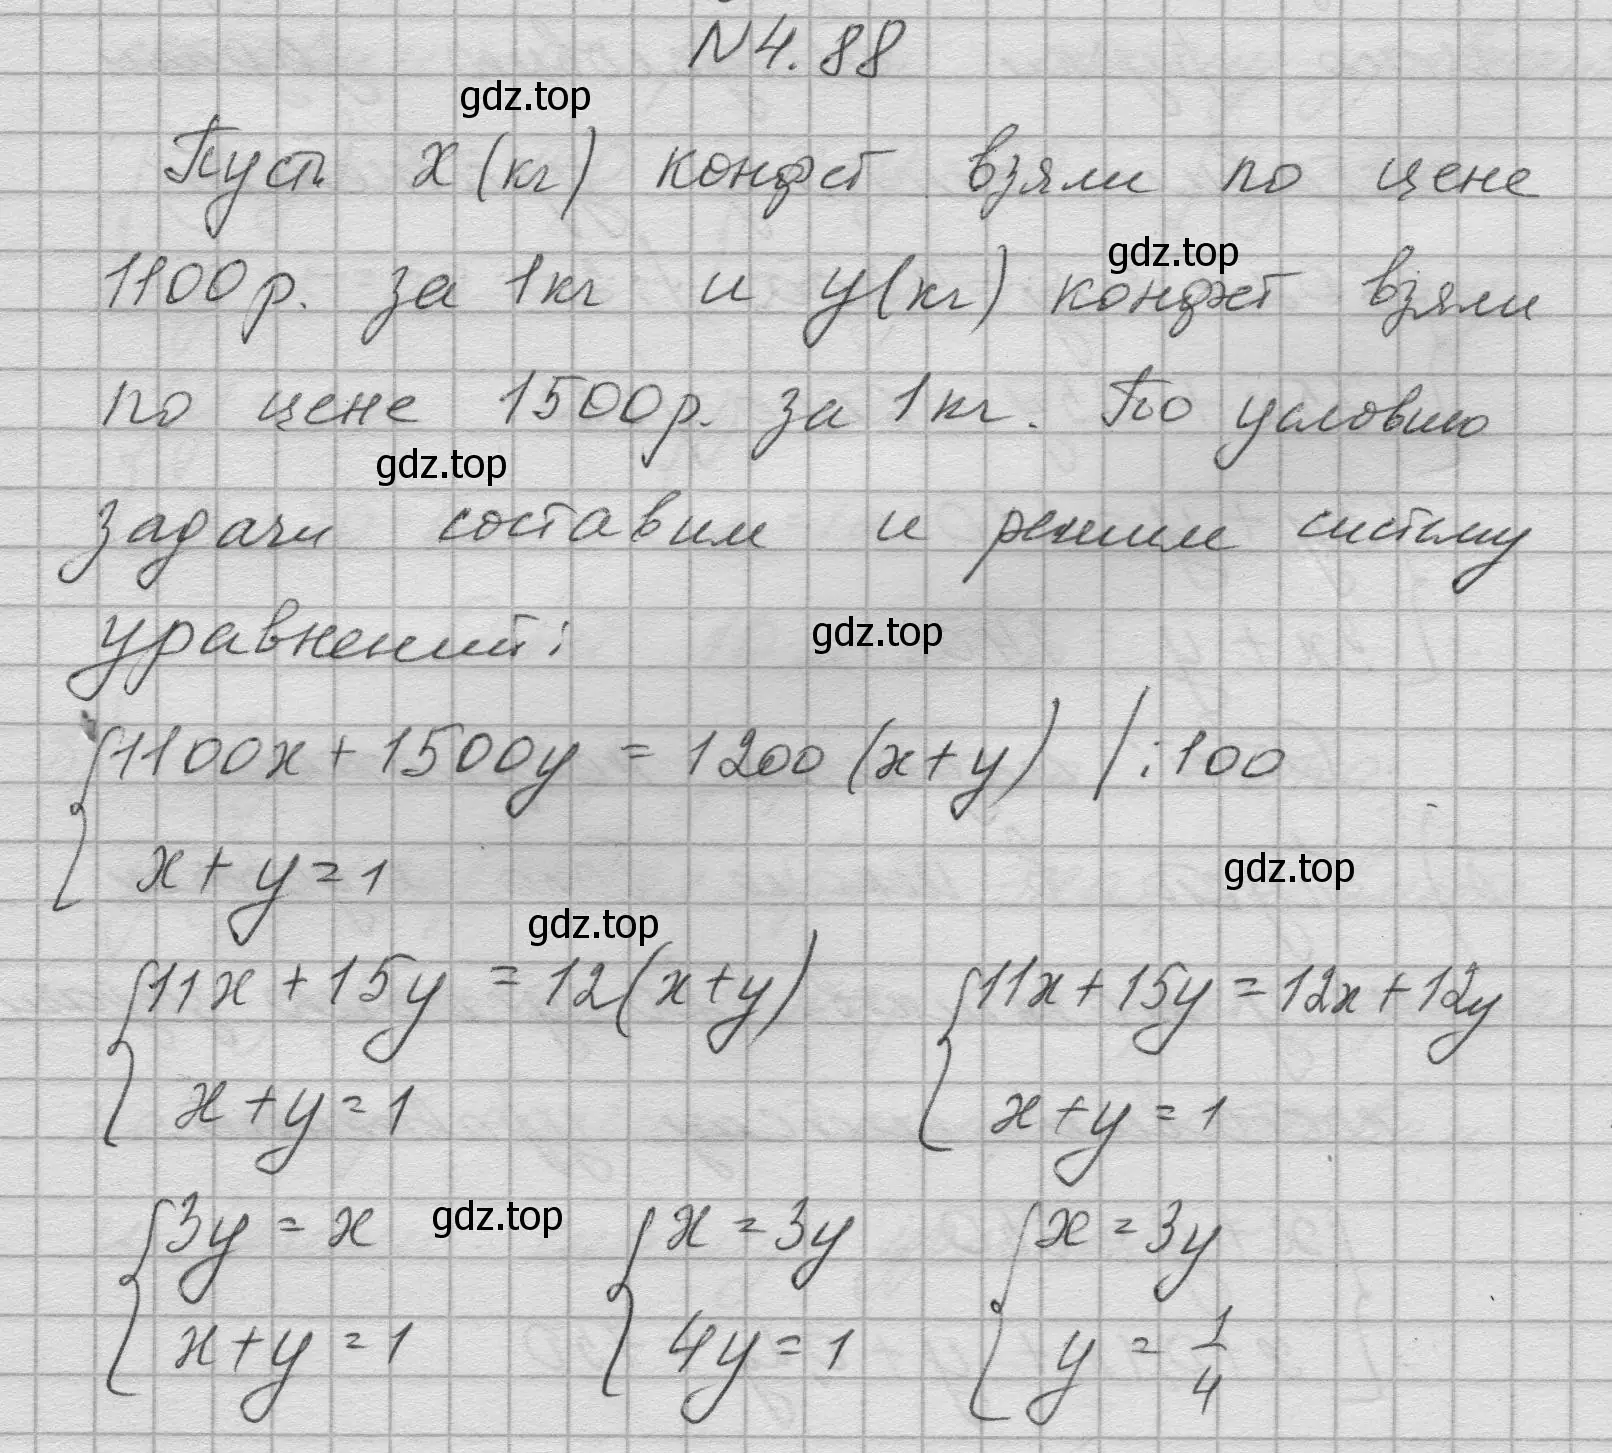 N4.88
gdz.top
Пусть x(кг) конфет взяли по цене
gdz.top
1100р. за 1кг и y(кг) конфет взяли
по цене 1500р. за 1кг. По условию
gdz.top
задачи составим и решим систему
уравнений:
gdz.top
{1100x+1500y = 1200(x+y) /:100
x+y=1
gdz.top
gdz.top
{11x+15y =12(x+y) {11x+15y=12x+12y
x+y=1 x+y=1
{3y=x gdz.top {x=3y {x=3y
x+y=1 4y=1 y=1/4